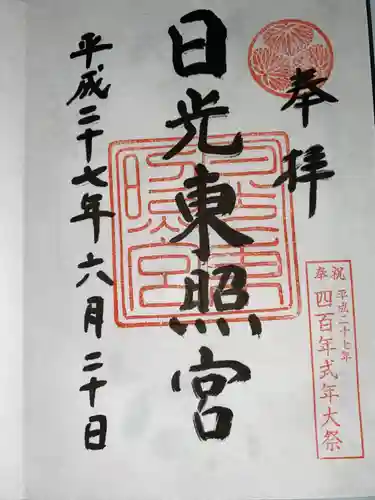 奉拝
日光東照宮
平成二十七年六月二十日
奉祝
平成二十七年
四百年式年大祭
日光東照宮